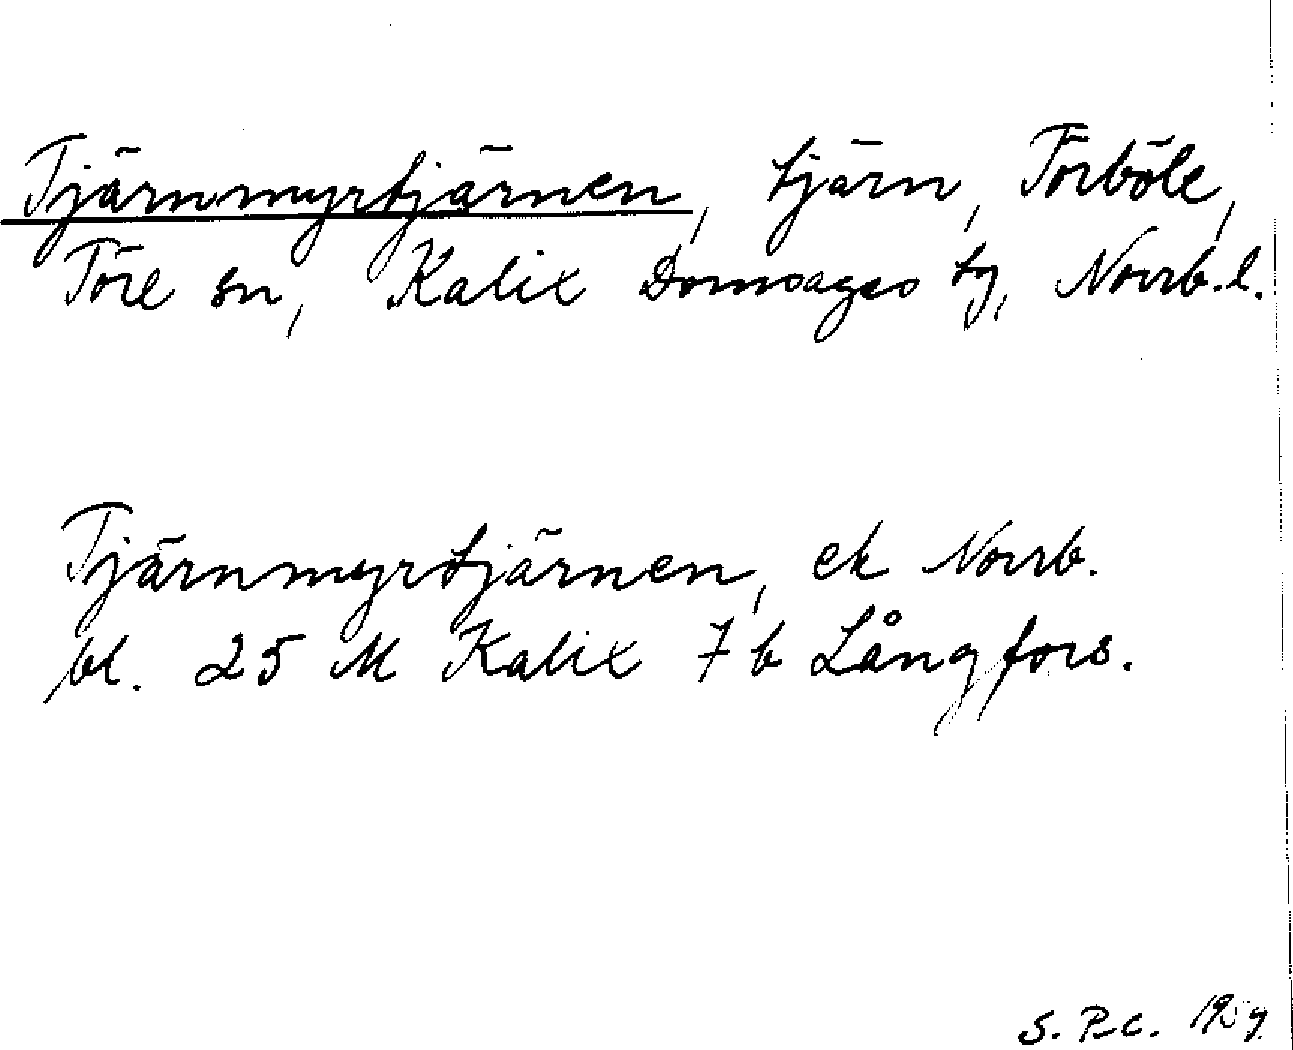 Tjärnmyrtjärnen, tjärn, Törböle,
Töre sn, Kalix Domsagas tg, Norrb.l.
Tjärnmyrtjärnen, ek Norrb.
bl. 25 M Kalix 7 b Långfors.
S. P-c.